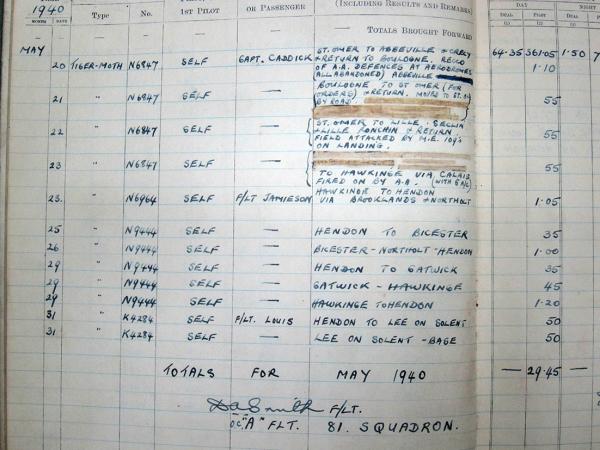 1940
Type No. 1ST PILOT OR PASSENGER (INCLUDING RESULTS AND REMARKS) DAY
DUAL PILOT DUAL
(1) (2) (3)
TOTALS BROUGHT FORWARD 64·35 361·05 1·50 7
MAY
20 TIGER-MOTH N6847 SELF CAPT. CADDICK ST. OMER TO ABBEVILLE + CRECY
+ RETURN TO BOULOGNE. RECCO
OF A.A. DEFENCES AT AERODROMES 1·10
(ALL ABANDONED) ABBEVILLE
21 " N6847 SELF — BOULOGNE TO ST OMER (FOR
ORDERS) + RETURN. MOVED TO ST. 55
BY ROAD.
22 " N6847 SELF — ST. OMER TO LILLE. SECLIN
+ LILLE RONCHIN & RETURN 55
FIELD ATTACKED BY M.E. 109's
ON LANDING.
23 " N6847 SELF — TO HAWKINGE VIA CALAIS 55
FIRED ON BY A.A.
23. " N6964 SELF F/LT JAMIESON HAWKINGE TO HENDON
VIA BROOKLANDS + NORTHOLT 1·05
25 " N9444 SELF — HENDON TO BICESTER 35
26 " N9444 SELF — BICESTER-NORTHOLT-HENDON 1·00
29 " N9444 SELF — HENDON TO GATWICK 35
29 " N9444 SELF — GATWICK-HAWKINGE 45
29 " N9444 SELF — HAWKINGE TO HENDON 1·20
31 " K4284 SELF F/LT. LOUIS HENDON TO LEE ON SOLENT 50
31 " K4284 SELF — LEE ON SOLENT - BASE 50
TOTALS FOR MAY 1940 — 29·45 —
Smith F/LT.
OC. "A" FLT. 81. SQUADRON.